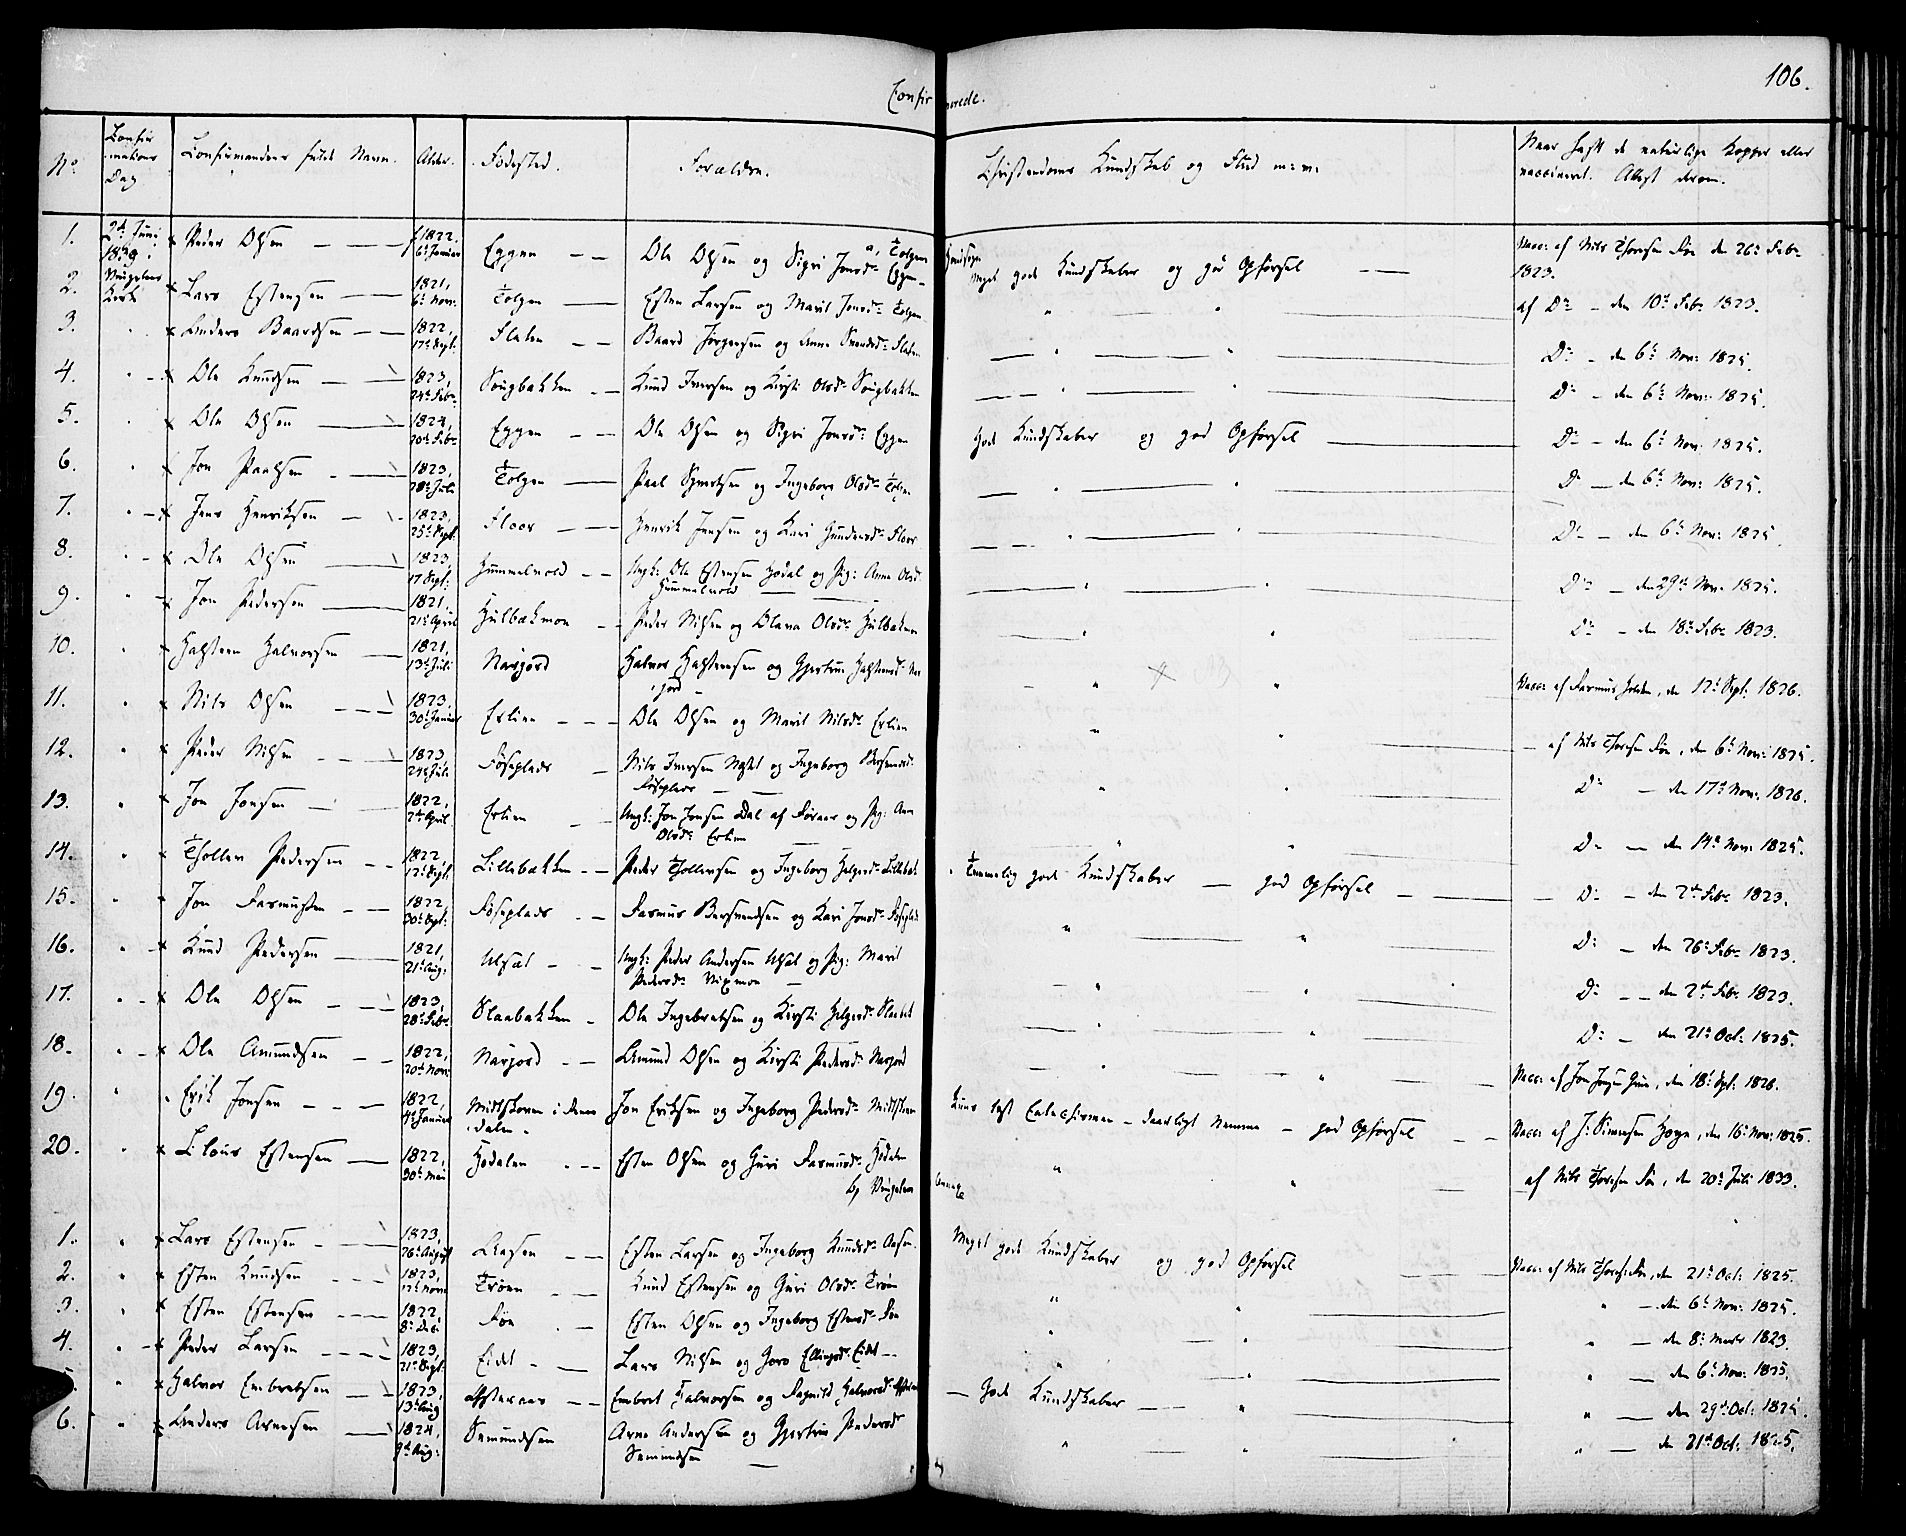 Confirmerede.
106.
No
Confirmations Dag
Confirmandens fulde Navn.
Alder.
Fødested.
Forældre.
Christendoms Kundskab og Flid m: m:
Naar haft de naturlige Kopper eller vaccineret. Attest derom.
1. 2d Juni 1839. Peder Olsen 1822. 6t Januar Eggen Ole Olsen og Sigri Jonsdr Eggen Meget gode Kundskaber og god Opførsel Vacc: af Nils Thoresen Føn den 26t Febr 1823.
2. Vingelens Kirke Lars Estensen 1821, 6t Nov: Tolgen Esten Larsen og Marit Jonsdr Tolgen " " af Do den 10t Febr 1823.
3. Anders Baardsen 1822, 17t Sept: Flaten Baard Jørgensen og Anne Svendsdr Flaten " " Do den 6t Nov: 1825.
4. Ole Knudsen 1823, 24t Febr Sougbakken Knud Iversen og Kirsti Olsdr Sougbakken " " Do den 6t Nov: 1825.
5. Ole Olsen 1824, 20t Febr Eggen Ole Olsen og Sigri Jonsdr Eggen Gode Kundskaber og god Opførsel Do den 6t Nov: 1825.
6. Jon Paalsen 1823, 28t Juli Tolgen Paal Sivertsen og Ingeborg Olsdr Tolgen " " Do den 6t Nov: 1825.
7. Jens Henriksen 1823, 25t Sept: Floor Henrik Jensen og Kari Gundersdr Floor " " Do den 6t Nov: 1825.
8. Ole Olsen 1823, 17 Sept: Hummelvold Ungk: Ole Estensen Hodal og Pig: Anne Olsdr Hummelvold " " Do den 29d Nov: 1825.
9. Jon Pedersen 1821. 21t April Hulbækmon Peder Nilsen og Olava Olsdr Hulbækmon " " Do den 18t Febr 1823.
10. Halsteen Halvorsen 1821, 13t Juli Narjord Halvor Halsteensen og Gjertrue Halsteensdr Narjord " " Vacc: af Rasmus Holden, den 12t Sept: 1826.
11. Nils Olsen 1823, 30t Januar Erlien Ole Olsen og Marit Nilsdr Erlien " " af Nils Thoresen Føn, den 6t Nov: 1825.
12. Peder Nilsen 1823 24t Juli Føseplads Nils Iversen og Ingeborg Føseplads " " Do den 17t Nov: 1826.
13. Jon Jonsen 1822, 2d April Erlien Ungk: Jon Jonsen Dal af Foraar og Pig: Ane Olsdr Erlien " " Do den 14t Nov: 1825.
14. Thollev Pedersen 1822, 12t Sept: Lillebækken Peder Thollevsen og Ingeborg Helgesdr Lillebæk Temmelig gode Kundskaber god Opførsel Do den 2d Febr 1823.
15. Jon Rasmussen 1822, 30t Sept: Føseplads Rasmus Bersvendsen og Kari Jonsdr Føseplads " " Do den 26t Febr 1823.
16. Knud Pedersen 1821, 21t Aug: Ulsæt Ungk: Peder Andersen Ulsæt og Pig: Marit Pedersdr " " Do den 2d Febr 1823.
17. Ole Olsen 1823, 28t Febr Slaabakken Ole Ingebretsen og Kirsti Helgesdr Slaabak " " Do den 21t Oct: 1825.
18. Ole Amundsen 1822, 20d Nov: Narjord Amund Olsen og Kirsti Pedersdr Narjord " " Vacc: af Jon Gun, den 18t Sept: 1826.
19. Erik Jonsen 1822, 4t Januar Midtskoven i Dalen Jon Eriksen og Ingeborg Pedersdr Midtskoven Kuns læst Catechismen – daarligt Nemme – god Opførsel Vacc: af J: Simensen Høye, den 16t Nov: 1825.
20. Estensen 1822, 30t Mai Hodalen Esten Olsen og Guri Rasmusdr Hodalen " " af Nils Thoresen Føn, den 20t Juli 1833.
b) Vingelens Annexe
1. Lars Estensen 1823, 26t August Aasen Esten Larsen og Ingeborg Knudsdr Aasen Meget gode Kundskaber og god Opførsel Vacc: af Nils Thores: Føn, den 21t Oct: 1825.
2. Esten Knudsen 1823, 12t Novr Trøen Knud Estensen og Guri Olsdr Trøen " " " den 6t Nov: 1825.
3. Esten Estensen 1822, 8t Dec: Føn Esten Olsen og Ingeborg Estensdr Føn " " " den 8t Marts 1823.
4. Peder Larsen 1823, 21t Sept: Eidet Lars Nilsen og Goro Ellingsdr Eidet " " " den 6t Nov: 1825.
Halvor Embretsen 1823, 13t Aug Embret Halvorsen og Ragnild Halvorsdr Gode Kundskaber " " den 29d Oct: 1825.
6. Anders Arnesen 1824, 9d Aug: Semundsen Arne Andersen og Gjertrue Pedersdr Semundsen " " " den 21d Oct: 1825.